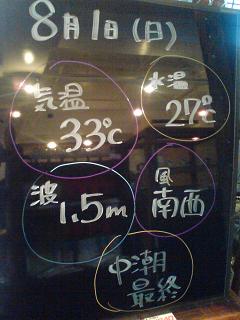 8月1日(日)
気温
33℃
水温
27℃
波
1.5m
風
南西
中潮
最終